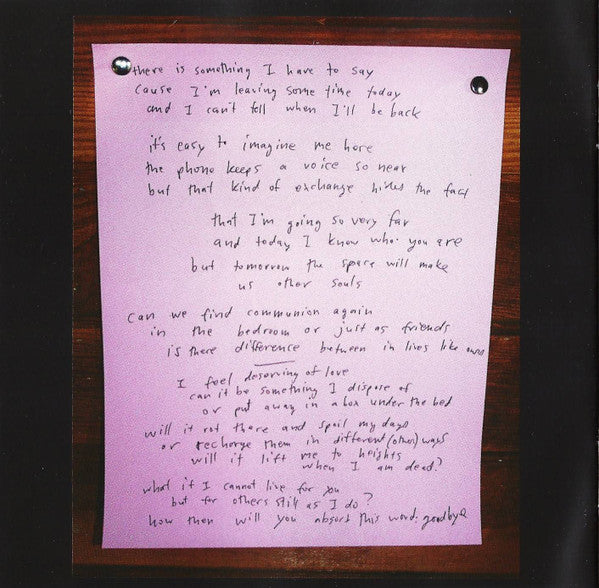 there is something I have to say
cause I'm leaving some time today
and I can't tell when I'll be back
it's easy to imagine me here
the phone keeps a voice so near
but that kind of exchange hides the fact
that I'm going so very far
and today I know who you are
but tomorrow the space will make
us other souls
can we find communion again
in the bedroom or just as friends
is there difference between in lives like ours
I feel deserving of love
can it be something I dispose of
or put away in a box under the bed
will it rot there and spoil my days
or recharge them in different (other) ways
will it lift me to heights
when I am dead?
what if I cannot live for you
but for others still as I do?
how then will you absorb this word: goodbye